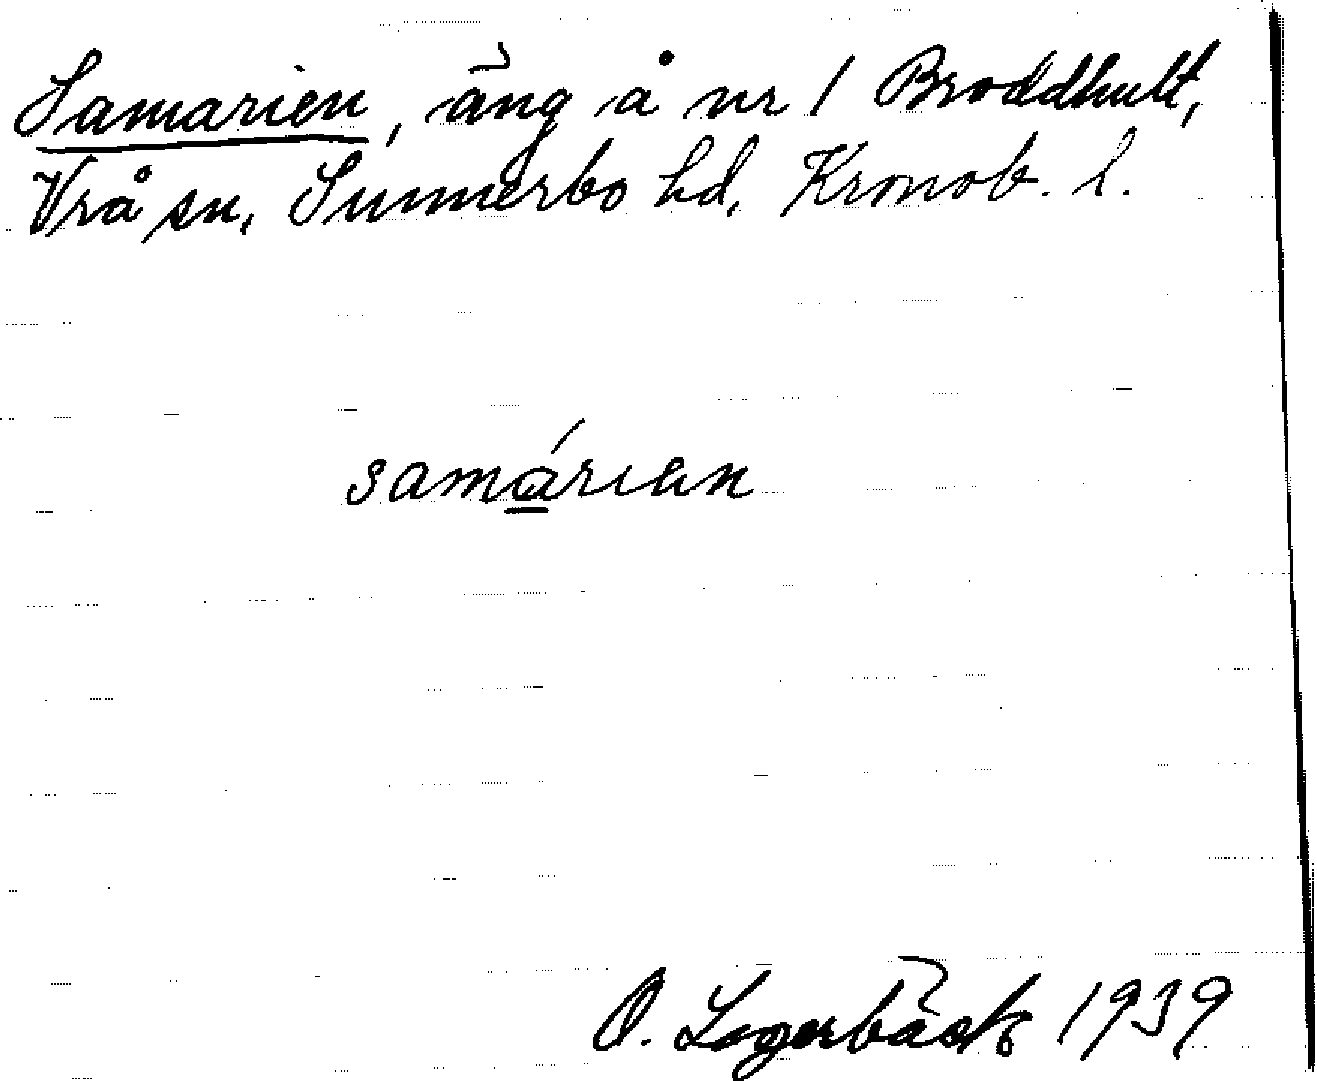 Samarien, äng å nr 1 Broddhult,
Vrå sn, Sunnerbo hd, Kronob. l.
samárien
O. Lagerbäck 1939